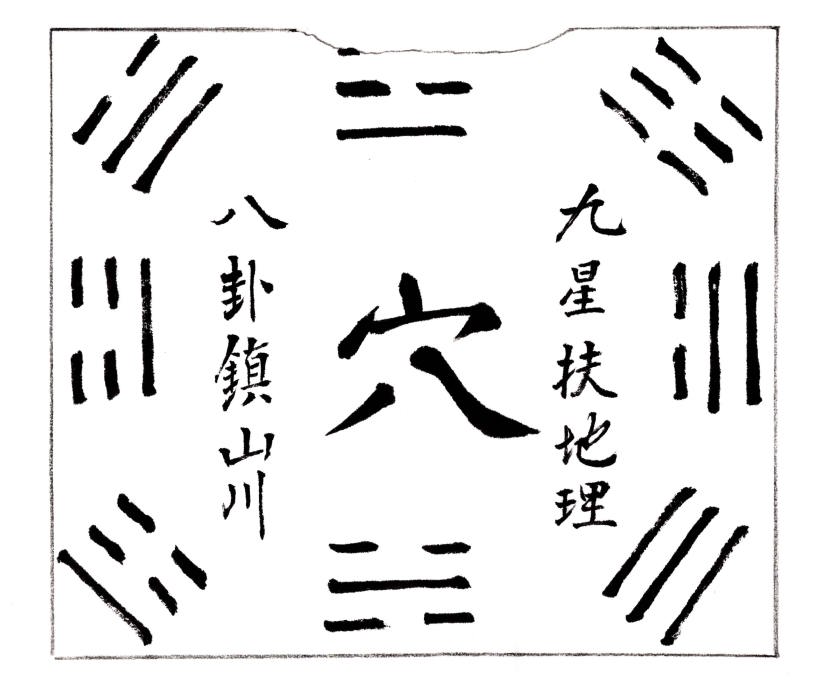 九星扶地理
穴
八卦鎮山川